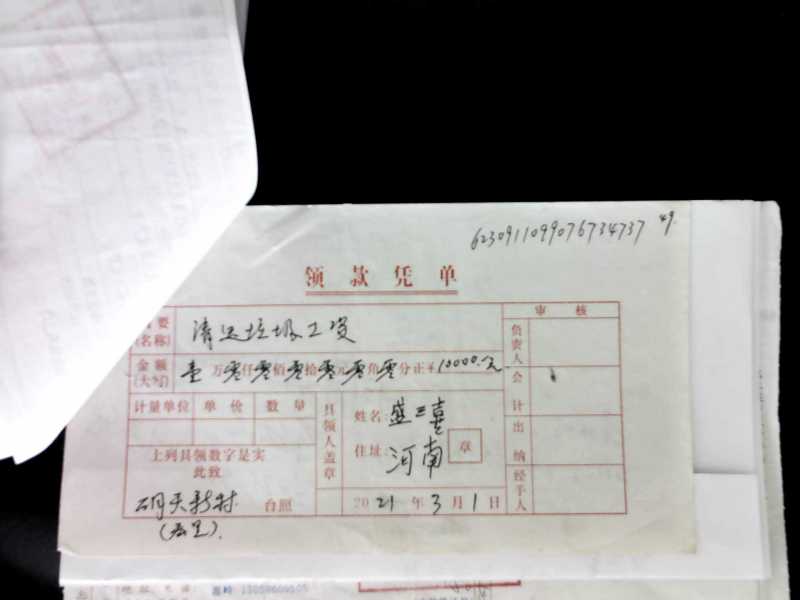 6230911099076734737 49.
领款凭单
审核
要(名称) 清运垃圾工资
负责人
金额(大写) 壹万零仟零佰零拾零元零角零分正¥10000.元
会计
计量单位 单价 数量
具领人盖章
姓名:盛三喜
住址:河南 章
出纳
上列具领数字是实
此致
经手人
台照
2021年3月1日